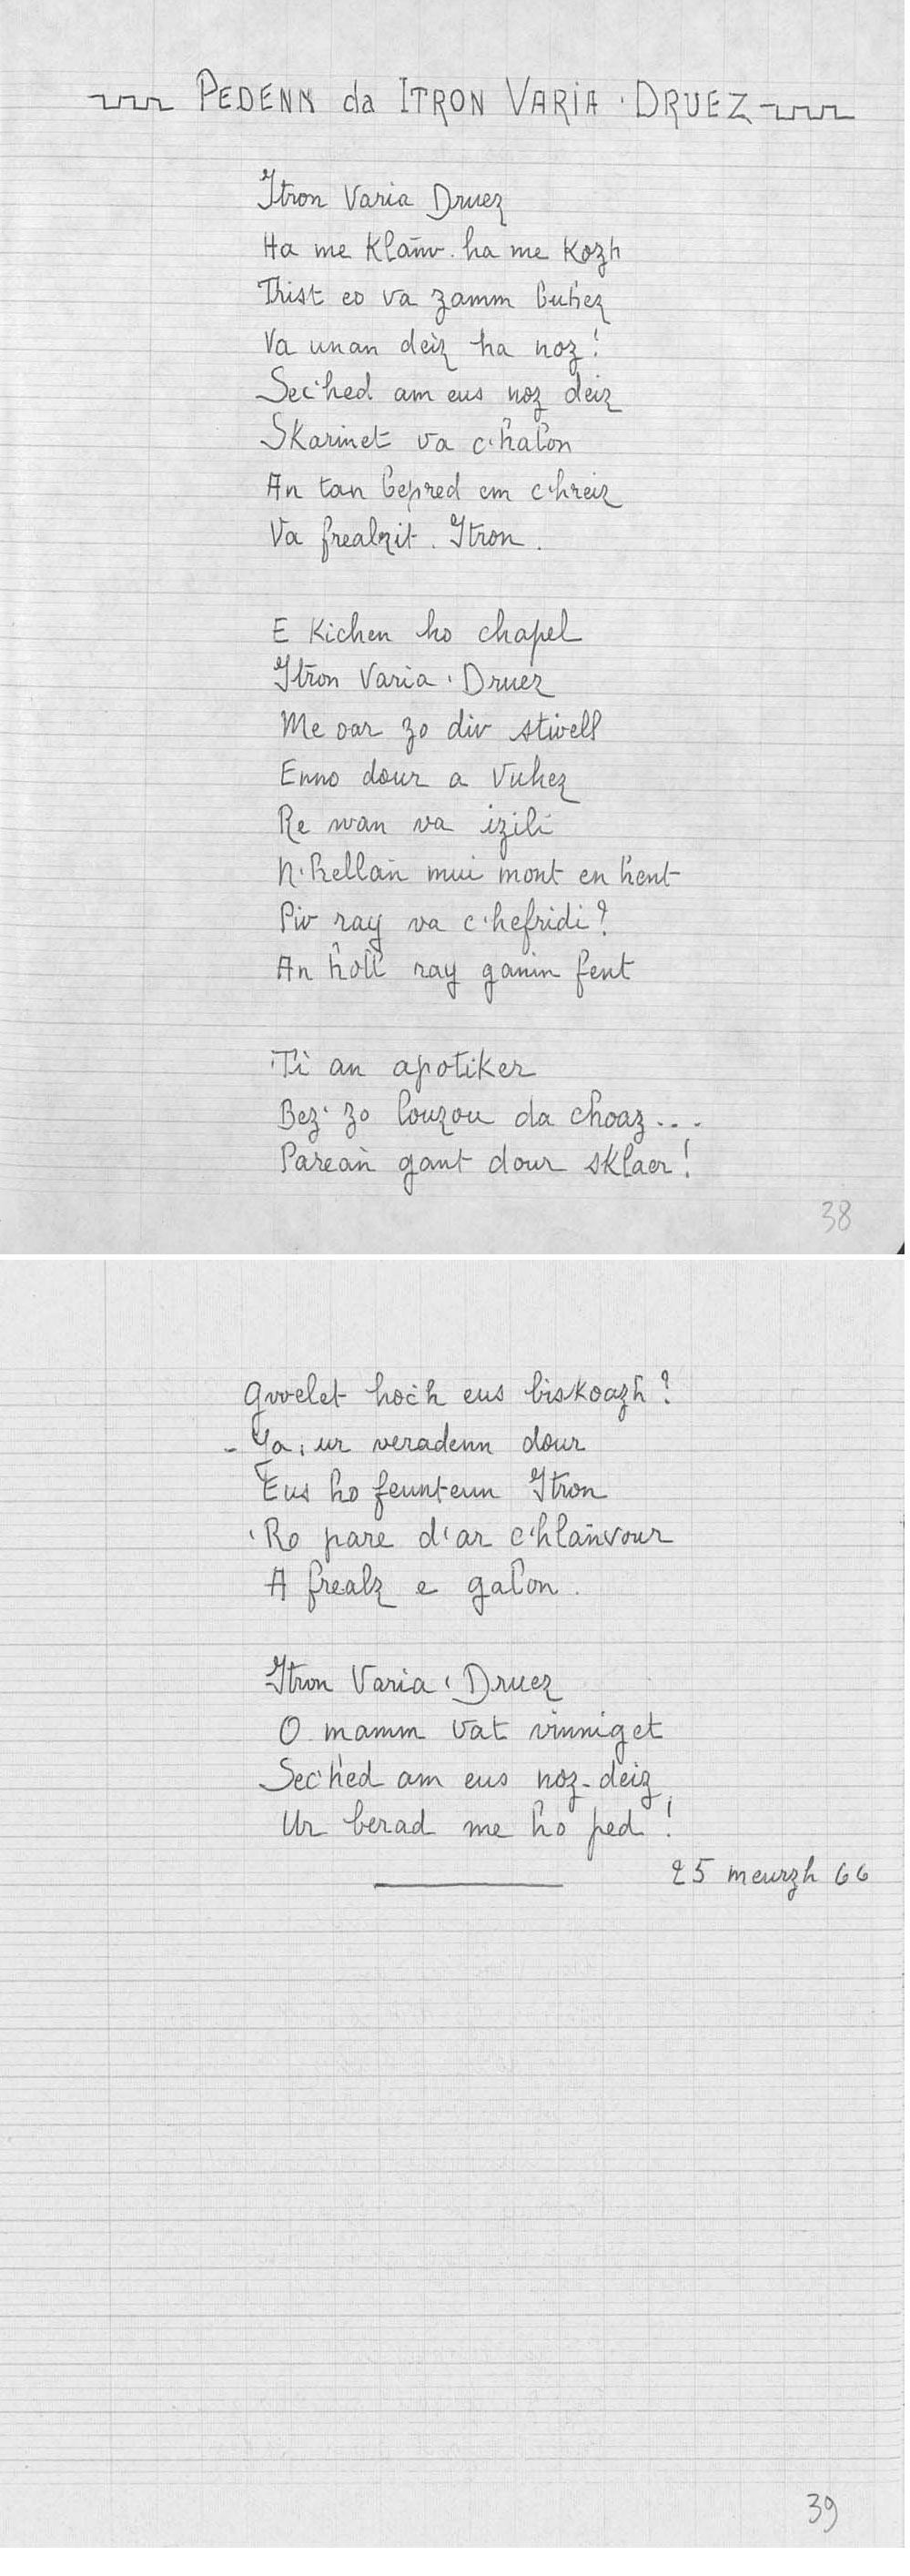 PEDENN da ITRON VARIA 'DRUEZ
Itron Varia Druez
Ha me klañv. ha me kozh
Trist eo va zamm buhez
Va unan deiz ha noz!
Sec'hed am eus noz deiz
Skarinet va c'halon
An tan bepred em c'hreiz
Va frealzit. Itron.
E kichen ho chapel
Itron Varia 'Druez
Me oar zo div stivell
Enno dour a vuhez
Re wan va izili
N'hellañ mui mont en hent
Piv ray va c'hefridi?
An holl ray ganin fent
'Ti an apotiker
Bez' zo louzou da choaz...
Parean gant dour sklaer!
38
Gwelet hoc'h eus biskoazh?
- Ya, ur veradenn dour
Eus ho feunteun Itron
'Ro pare d'ar c'hlañvour
A frealz e galon.
Itron Varia 'Druez
O mamm vat vinniget
Sec'hed am eus noz-deiz
Ur berad me ho ped!
25 meurzh 66
39